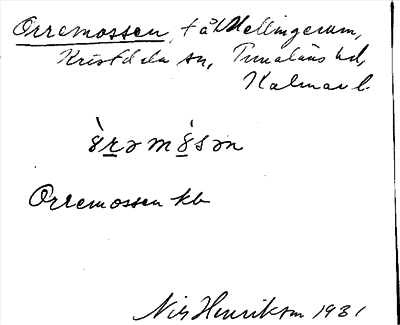 Orremossen, t å Hellingerum,
Kristdala sn, Tunaläns hd,
Kalmar l.
òrəmòsən
Orremossen kb
Nils Henriksson 1931